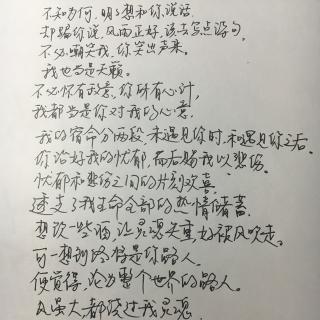 不知为何,明明想和你说话,
却骗你说,风雨正好,该去写点诗句。
不必嘲笑我,你笑出声来,
我也当是天籁。
不必怀有敌意,你所有心计,
我都当是你对我的心意。
我的宿命分两段,未遇见你时,和遇见你之后。
你治好我的忧郁,而后赐我以悲伤。
忧郁和悲伤之间的片刻欢喜,
透支了我生命全部的热情储蓄。
想饮一些酒,让灵魂失重,好被风吹走。
可一想到终将是你路人,
便觉得,沦为整个世界的路人。
风虽大,都绕过我灵魂。